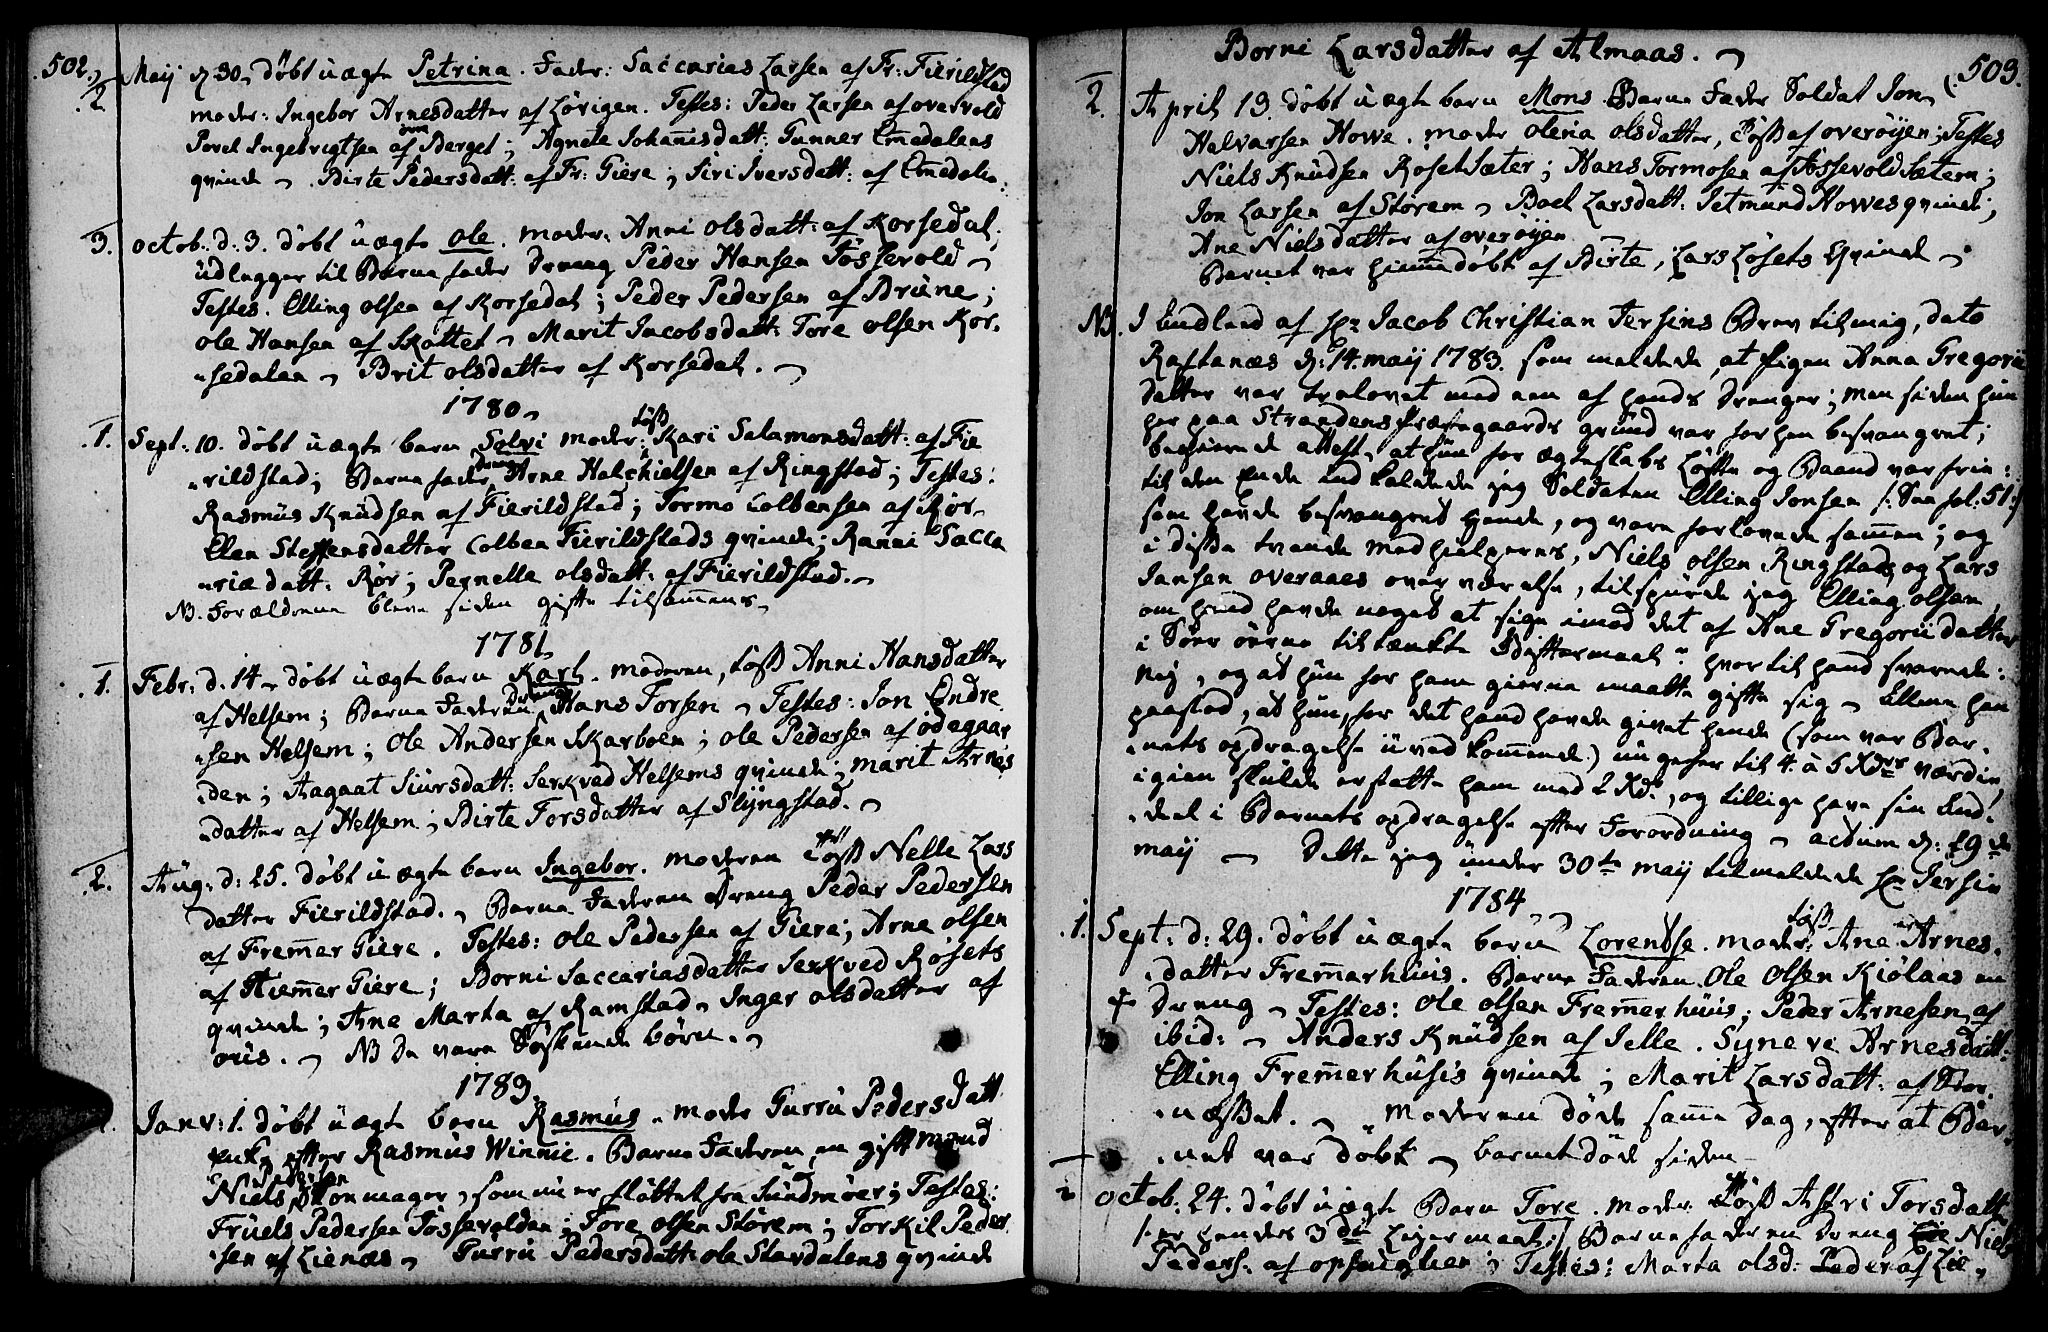 502.
2. Maij d. 30. døbt uægte Petrina. Fader: Saccarias Larsen af Fr: Fierildstad
moder: Ingebor Arnesdatter af Løvigen. Testes: Peder Larsen af overvold
Povel Ingebrigtsen af Berget; Agnete Johannisdatt: Gunner Emedalens
qvinde - Birte Pedersdatt: af Fr: Giere; Siri Iversdatt: af Emedalen.
3. octob: d. 3. døbt uægte Ole. moder: Anni olsdatt: af Korsedal;
udlegger til Barne fader Dreng Peder Hansen Fossevold -
Testes. Elling olsen af Korsedal; Peder Pedersen af Brune;
ole Hansen af Skottet - Marit Jacobsdatt: Tore olsen Kor-
sedalen - Brit olsdatter af Korsedal. -
1780.
1. Sept: 10. døbt uægte barn Solvi moder: løsß Kari Salamonsdatt: af Fie
rildstad; Barne fader dreng Arne Halchielsen af Ringstad; Testes:
Rasmus Knudsen af Fierildstad; Tormo Colbensen af Rør -
Elen Steffensdatter Colben Fierildstads qvinde; Ranni Sacca
riædatt. Rør; Pernelle olsdatt: af Fierildstad. -
NB. Forældrene bleve siden gifte tilsammens -
1781.
1. Febr: d. 14. døbt uægte barn Karl. moderen, Løsß Anni Hansdatter
af Helsem; Barne Faderen Dreng Hans Torsen - Testes: Jon Endre
sen Helsem; Ole Andersen Skarboen; ole Pedersen af ødegaar
den; Aagaat Siursdatt: Serkved Helsems qvinde; marit Arnes
datter af Helsem; Birte Torsdatter af Slyngstad. -
2. Aug: d: 25. døbt uægte barn Ingebor. moderen Løsß Nelle Lars
datter Fierildstad. - Barne Faderen Dreng Peder Pedersen
af Fremmer Giere. Testes: ole Pedersen af Giere; Arne olsen
af Hiemmer Giere; Borni Saccariasdatter Serkved Røsets
qvinde; Ane Marta af Ramstad - Inger olsdatter af
ouis. - NB De vare Søskende børn. -
1783.
1. Janv: 1. døbt uægte barn Rasmus - moder Gurru Pedersdatt
enke efter Rasmus Winnie. Barne Faderen en gift mand
Niels Pedersen Konmager, som nu er fløttet fra Sundmøer; Testes:
Fruels Pedersen Fossevolden; Tore olsen Størem; Torkil Peder
sen af Lienæs - Gurru Pedersdatt: ole Stavdalens qvinde
503.
Borni Larsdatter af Almaas. -
2. April 19. døbt uægte barn Mons Barne Fader Soldat Jon
Halvarsen Howe. moder olena olsdatter, Løsß af overøijen; Testes
Niels Knudsen Rosetsæter; Hans Tormosen af Fossevoldsætern;
Jon Larsen af Størem - Boel Larsdatt: Jetmund Howes qvinde;
Ane Nielsdatter af overøijen
Barnet var hiemmedøbt af Birte, Lars Løsets Qvinde -
NB. I Andled af hr Jacob Christian Jersins Brev til mig, dato
Raftenæs d: 14. maij 1783. som meldede, at Pigen Anna Gregorii
datter var trolovet med een af hends Drenger; men siden hun
her paa Strandens Præstegaards grund var forhen besvangret;
begierede attest, at hun for ægteskabs Løfte og Baand var frie:
til den Ende indkaldede jeg Soldaten Elling Jonsen /: See fol: 51:/
som havde besvangret hende, og vare forlovede sammen; og
i disse tvende medhielperes, Niels olsen Ringstad, og Lars
Jansen overaaes overværelse, tilspurde jeg Elling olsen,
om hand havde noget at sige imod det af Ane Gregorii datter
i Søer øerne tiltænkte Giftermaal? hvortil hand svarede:
Nej, og at hun for ham gierne maatte gifte sig - Allene han
paastod, at hun, for det hand havde givet hende (som var Bar-
nets opdragelse uvedkommende) ungefer til 4. à 5 Rdrs værdie,
igien skulde erstatte ham med 2 Rd:, og tillige have sin And-
deel i Barnets opdragelse efter Forordning - actum d: 29de
maij - Dette jeg under 30te maij tilmeldede hr Jersin
1784.
1. Sept: d: 29. døbt uægte barn Lorentse. moder: Løsß Ane Arnes-
datter Fremmerhuus. Barne Faderen Ole Olsen Kiølaas en
Dreng - Testes: Ole olsen Fremmerhuus; Peder Arnesen af
ibid: - Anders Knudsen af Jelle. Syneve Arnesdatt:
Elling Fremmerhusis qvinde; Marit Larsdatt: af For-
næsset. - Moderen døde samme Dag, efter at Bar-
net var døbt - barnet døde siden -
2 octob: 24. døbt uægte Barn Tore. moder Løsß Astri Torsdatt
/: er hendes 3de Leyermaal :/ Barnefaderen Dreng Niels
Peders: af opshuglien; Testes: Marta olsd: Peder af Lie-